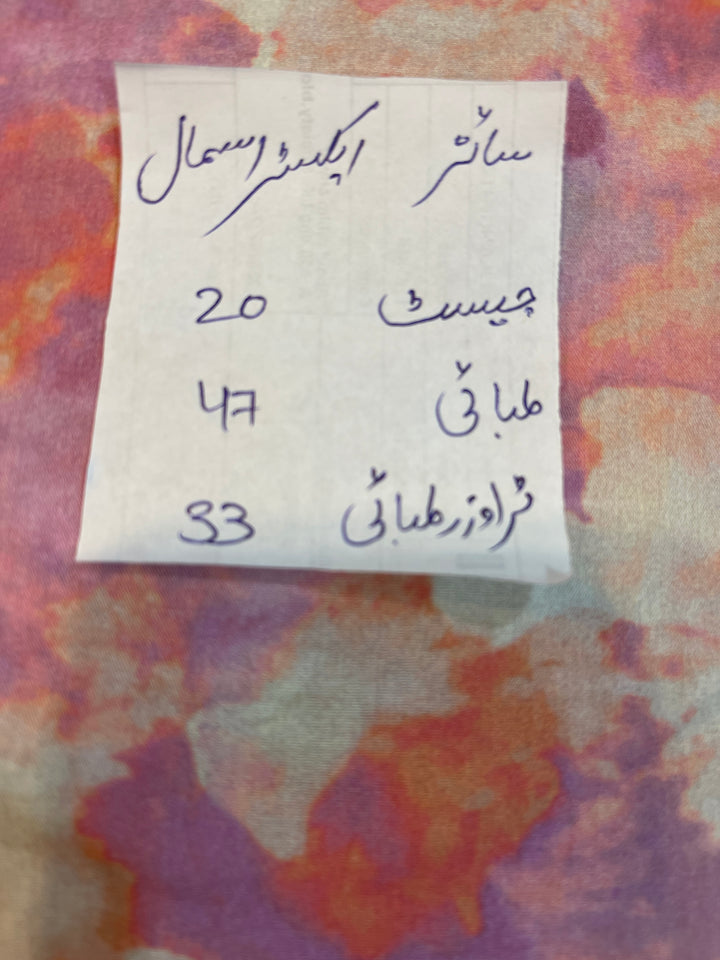 سائز ایکسٹر اسمال
چیسٹ 20
لمبائی 47
ٹراوزر لمبائی 33